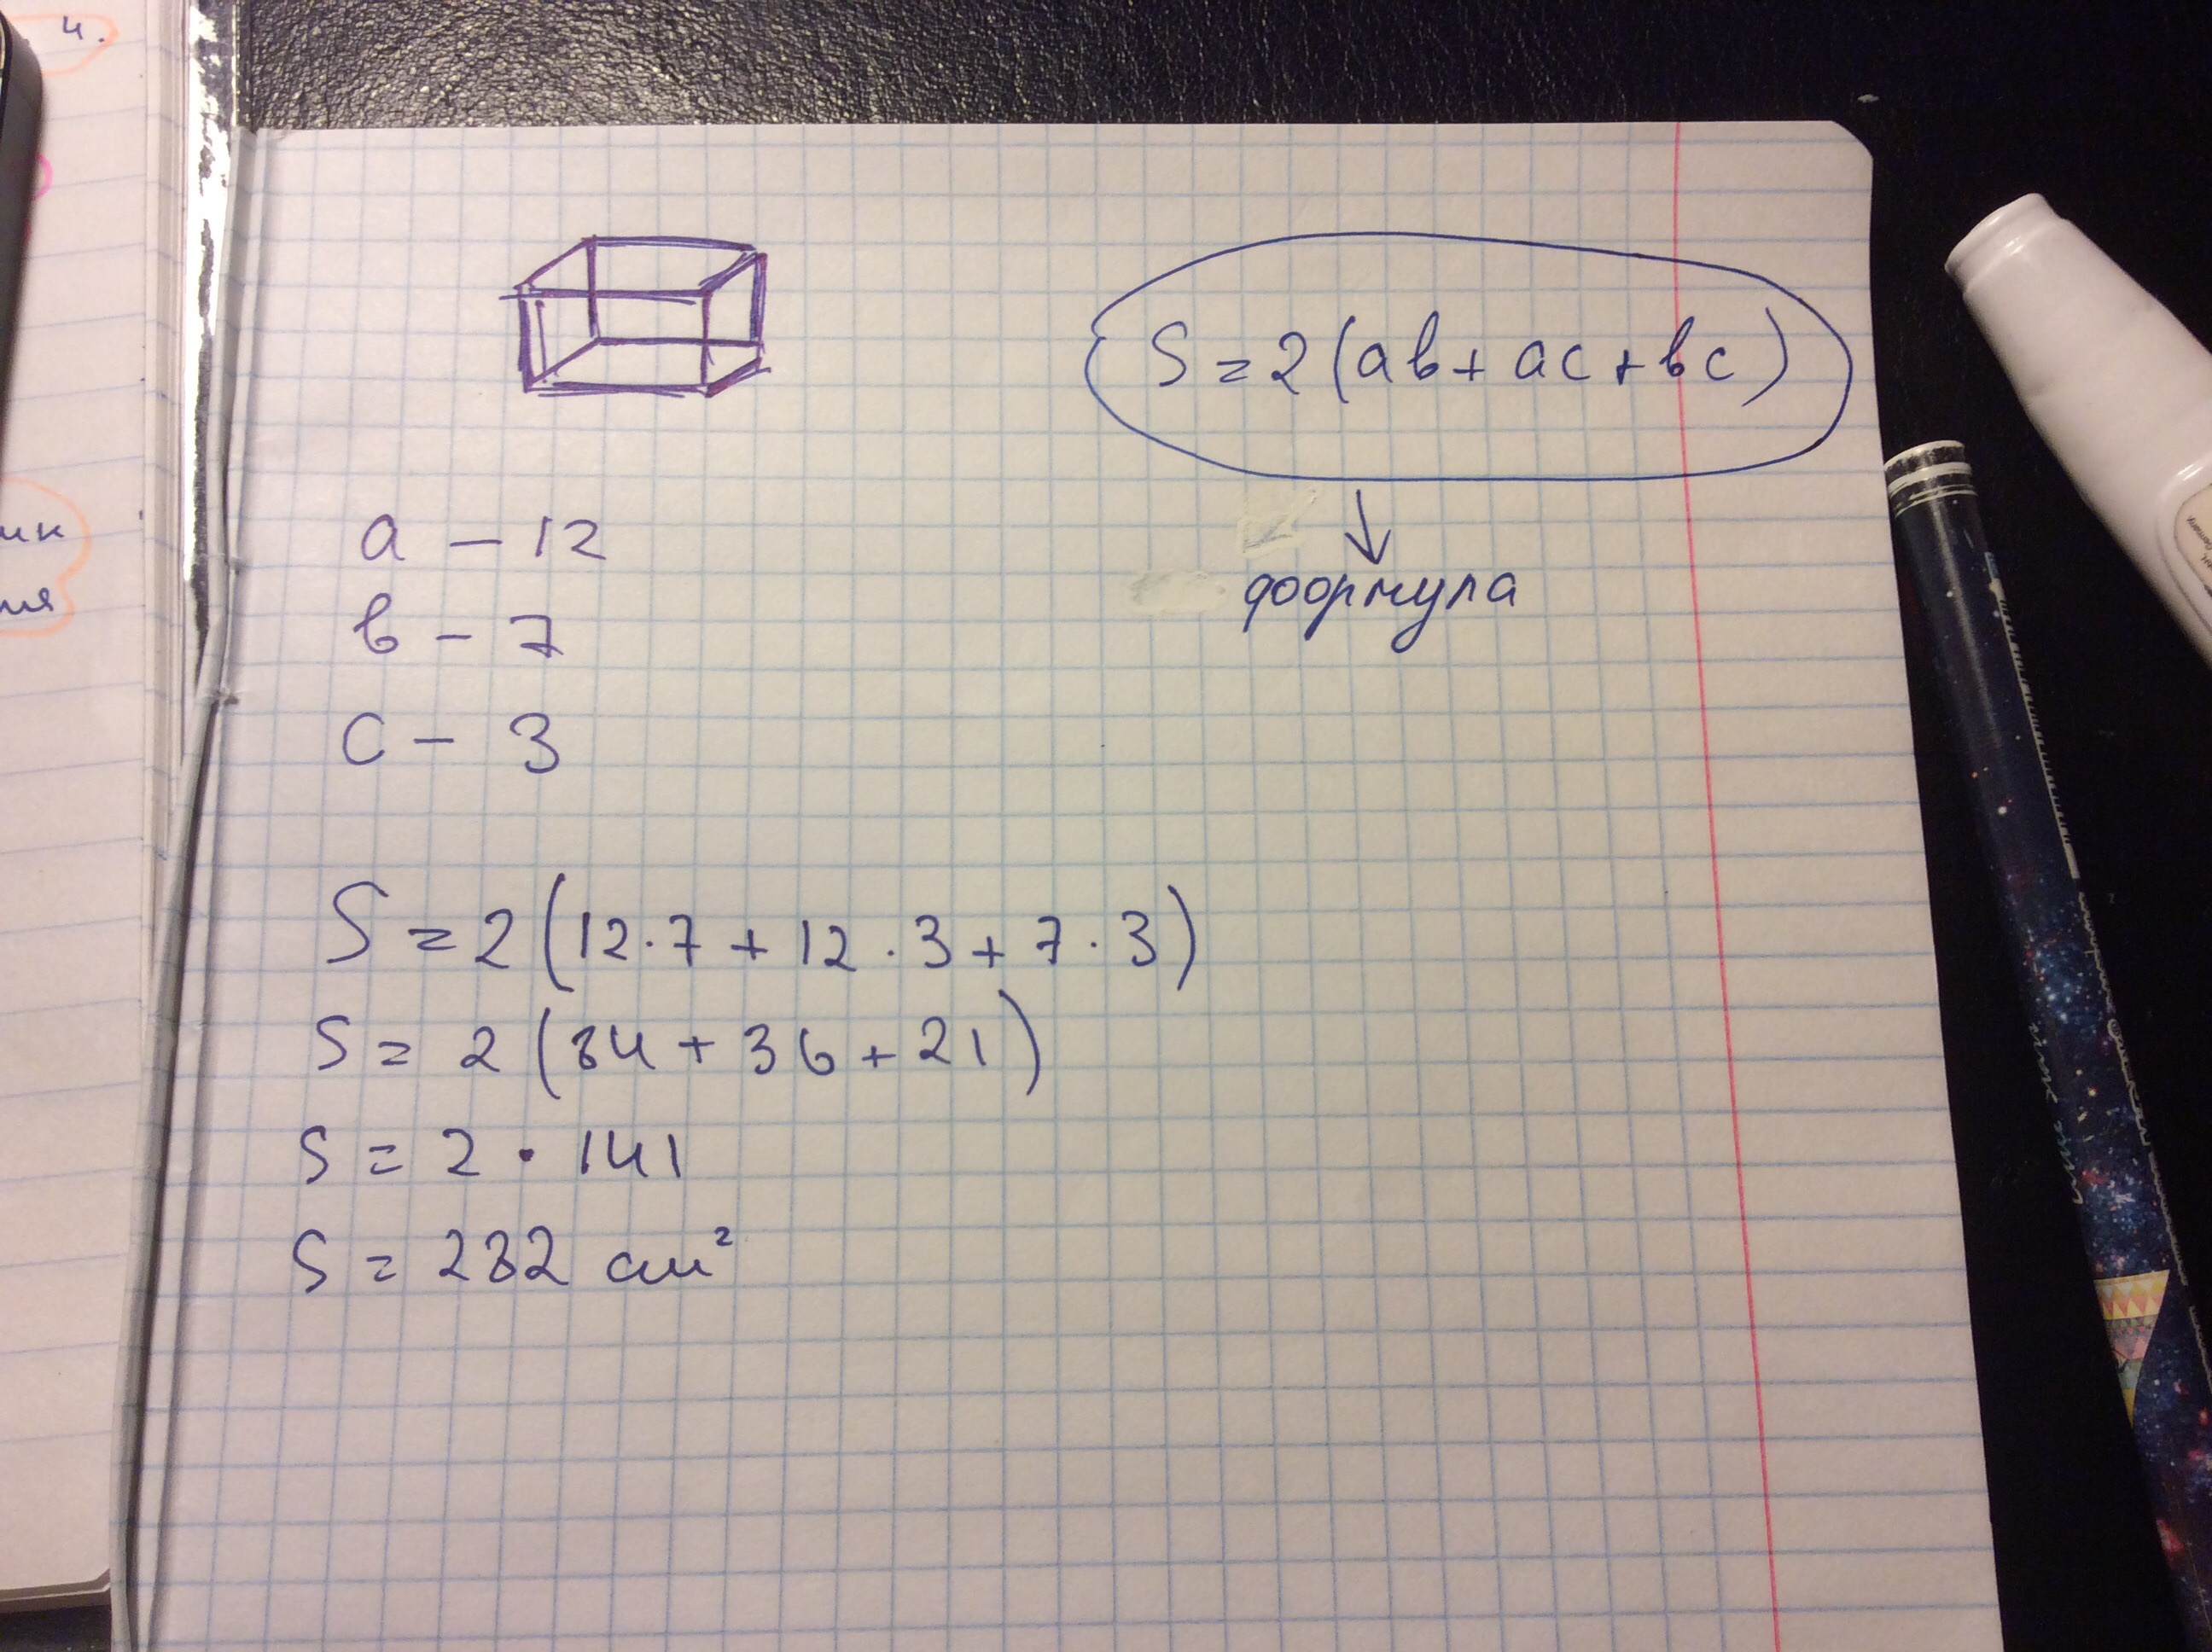 4.
S=2(ab+ac+bc)
формула
a - 12
b - 7
c - 3
S=2(12·7+12·3+7·3)
S=2(84+36+21)
S=2·141
S=282 см²